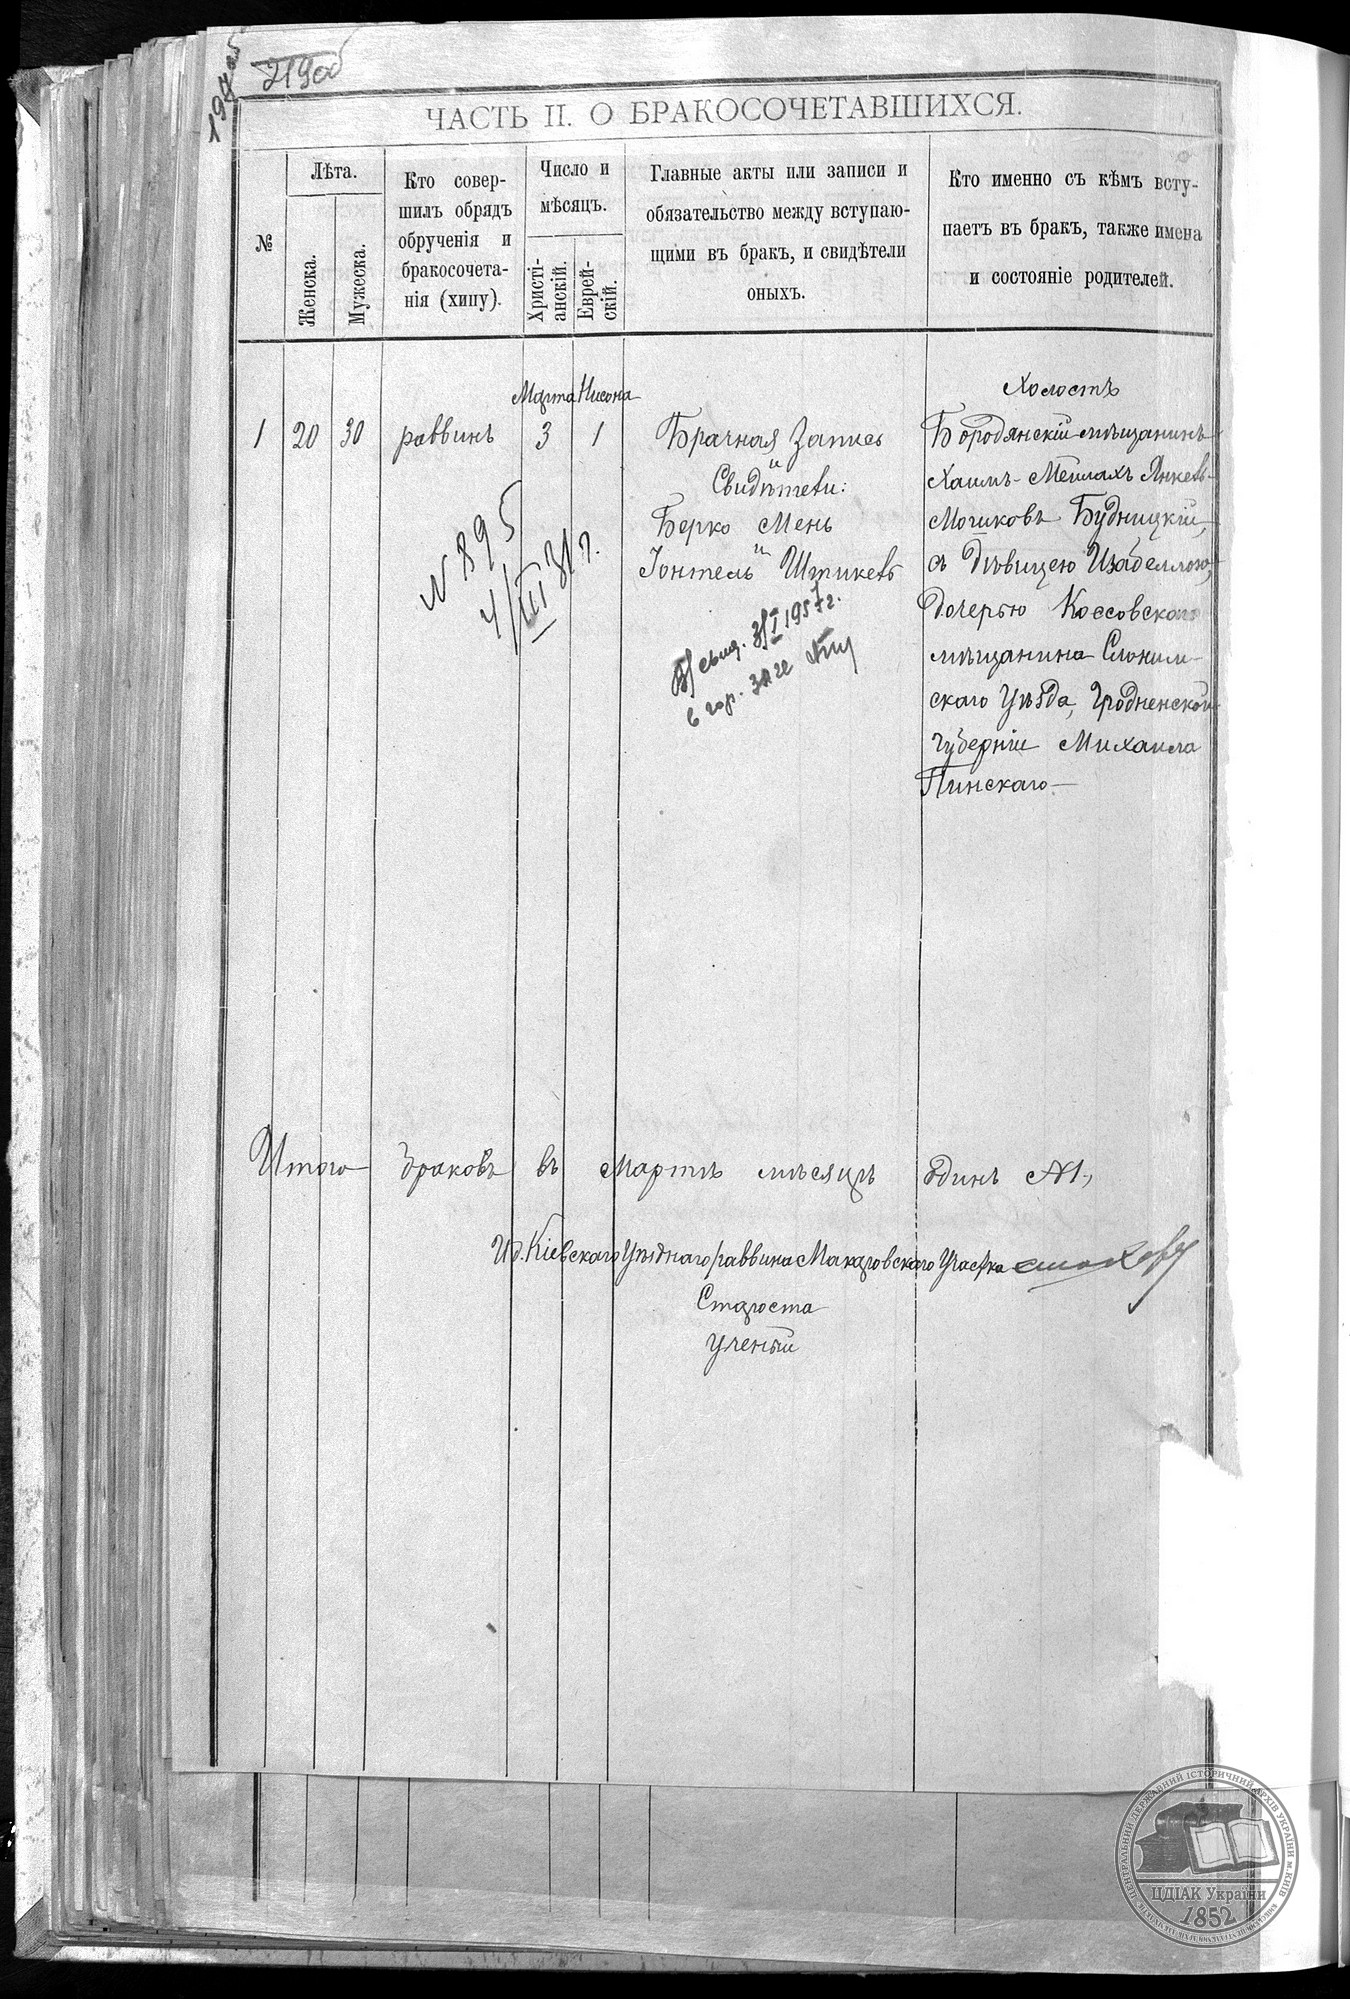 219об
ЧАСТЬ II. О БРАКОСОЧЕТАВШИХСЯ.
№
Лѣта.
Женска.
Мужеска.
Кто совер-
шилъ обрядъ
обрученія и
бракосочета-
нія (хипу).
Число и
мѣсяцъ.
Христі-
анскій.
Еврей-
скій.
Главные акты или записи и
обязательство между вступаю-
щими въ бракъ, и свидѣтели
оныхъ.
Кто именно съ кѣмъ всту-
паетъ въ бракъ, также имена
и состояніе родителей.
Марта Нисона
1 20 30 раввинъ 3 1
Брачная Запись
и
Свидѣтели:
Берко Мень
и
Іонтель Штикевъ
Холостъ
Бородянскій мѣщанинъ
Хаимъ-Мейлахъ Янкевъ-
Мошковъ Будницкій,
съ дѣвицею Изабеллою,
дочерью Коссовскаго
мѣщанина Слоним-
скаго Уѣзда, Гродненской
Губерніи Михаила
Пинскаго
N 895
4/III 31 г.
свид. 3/I 1957г.
в гор.
Итого браковъ въ Мартѣ мѣсяцѣ одинъ №1,
И д. Кіевскаго Уѣзднаго раввина Макаровскаго Участка
Староста
Ученый
ЦЕНТРАЛЬНИЙ ДЕРЖАВНИЙ ІСТОРИЧНИЙ АРХІВ УКРАЇНИ м. КИЇВ
ЦДІАК України
1852